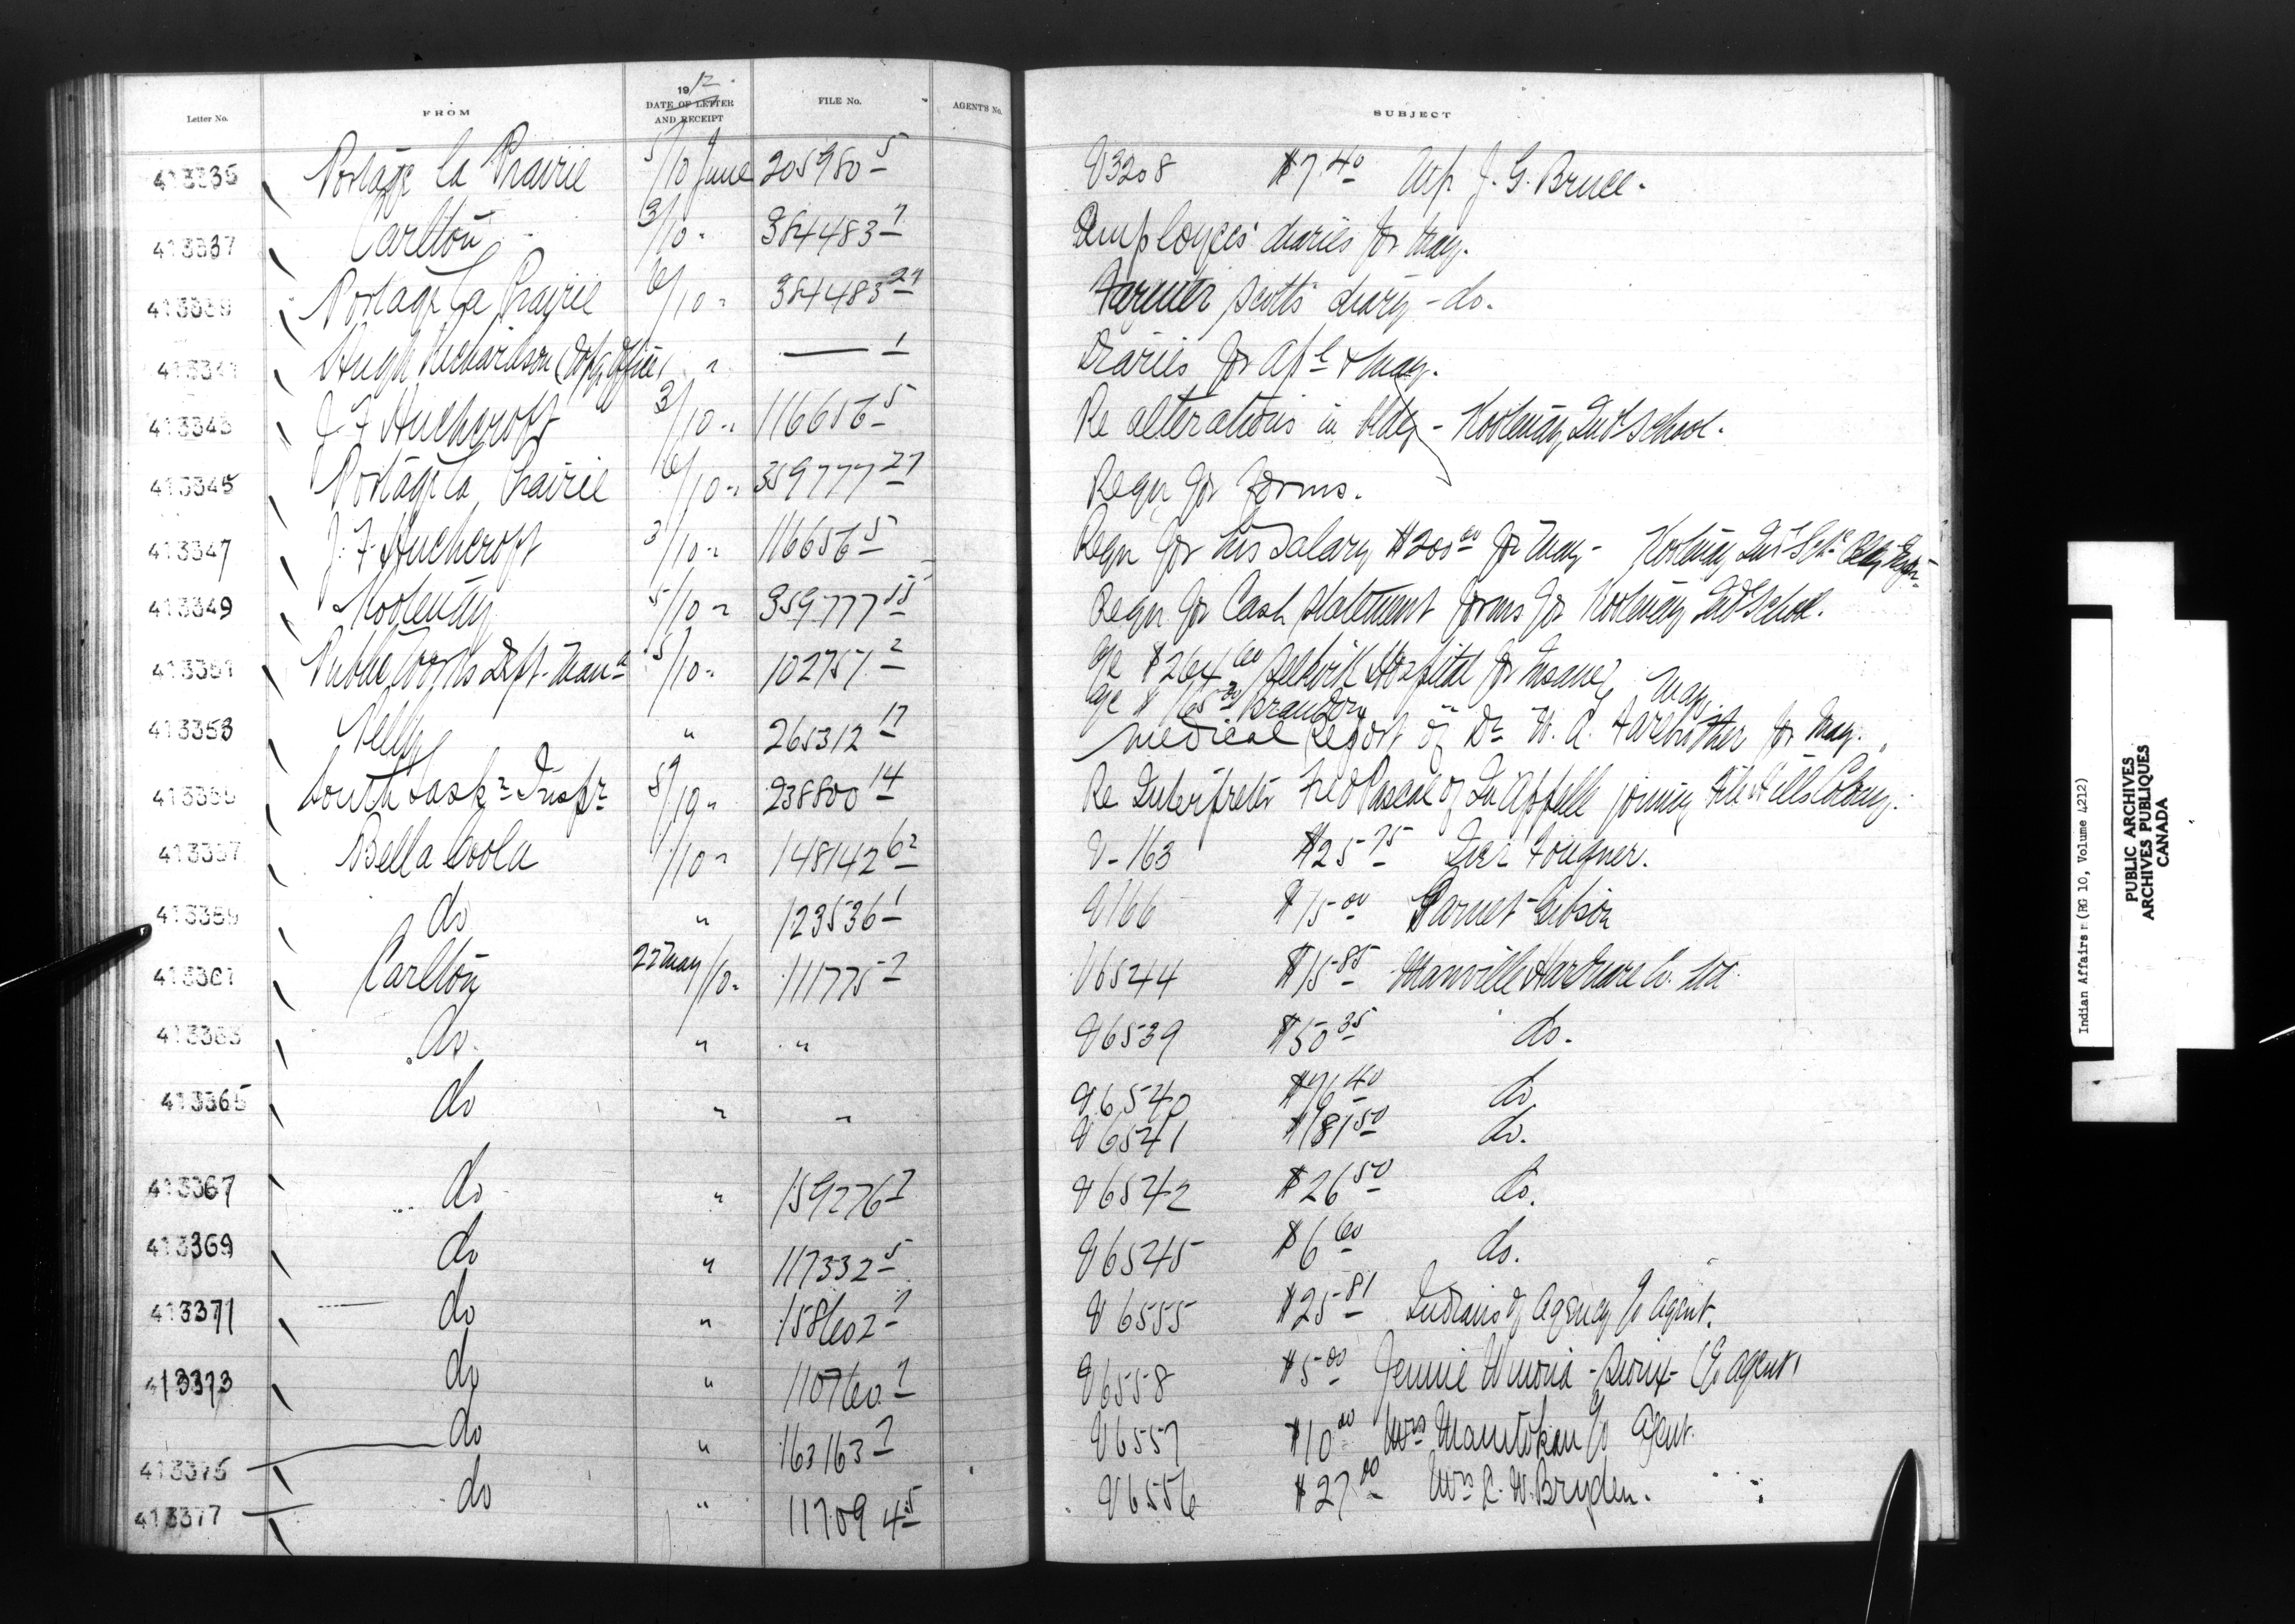 Letter No. FROM 1912 DATE OF LETTER AND RECEIPT FILE No. AGENT'S No. SUBJECT
413335 Portage la Prairie 5/10 June 205980-5 V3208 $7.40 J. G. Bruce.
413337 Carlton 3/10 " 384483-7 Employees' diaries for May.
413339 Portage la Prairie 6/10 " 384483-27 Farmer Scott's diary - do.
413341 Hugh Richardson " — 1 Diaries for Apl & May.
413343 J. F. Huchcroft 3/10 " 116656-5 Re alterations in bldg - Kootenay Indl School.
413345 Portage la Prairie 6/10 " 359777-27 Reqn for forms.
413347 J. F. Huchcroft 3/10 " 116656-5 Reqn for his salary $200.00 for May - Kootenay Indl Sch.
413349 Kootenay 5/10 " 359777-15 Reqn for Cash statement forms for Kootenay Ind School.
413351 Public Works Dept. Man. 5/10 " 102757-2 a/c $264.00 Selkirk Hospital for Insane, May
a/c $165.00 Brandon
413353 Pelly " 265312-17 Medical report of Dr. W. A. for May.
413355 South Sask. Inspr. 5/10 " 238800-14 Re Interpreter Fred Pascal of Qu'Appelle joining File Hills Colony.
413357 Bella Coola 1/10 " 148142-62 V-163 $25.75 Iver Fougner.
413359 do " 123536-1 V166 $15.00 Garnet Gibson
413361 Carlton 27 May/10 " 111775-7 V6544 $15.85 Manville Hardware Co. Ltd
413363 do. " " V6539 $50.35 do.
413365 do " " V6540 $76.40 do
V6541 $181.50 do.
413367 do " 159276-7 V6542 $26.50 do.
413369 do " 117332-5 V6545 $6.60 do.
413371 do " 158602-7 V6555 $25.81 Indians of Agency p Agent.
413373 do " 110760-7 V6558 $5.00 Jennie - Sioux - (p Agent)
413375 do " 163163-7 V6557 $10.00 Mrs Manitokan p Agent.
413377 do " 117094-5 V6556 $27.00 Mrs R. W. Bryden.
Indian Affairs (RG 10, Volume 4212)
PUBLIC ARCHIVES
ARCHIVES PUBLIQUES
CANADA